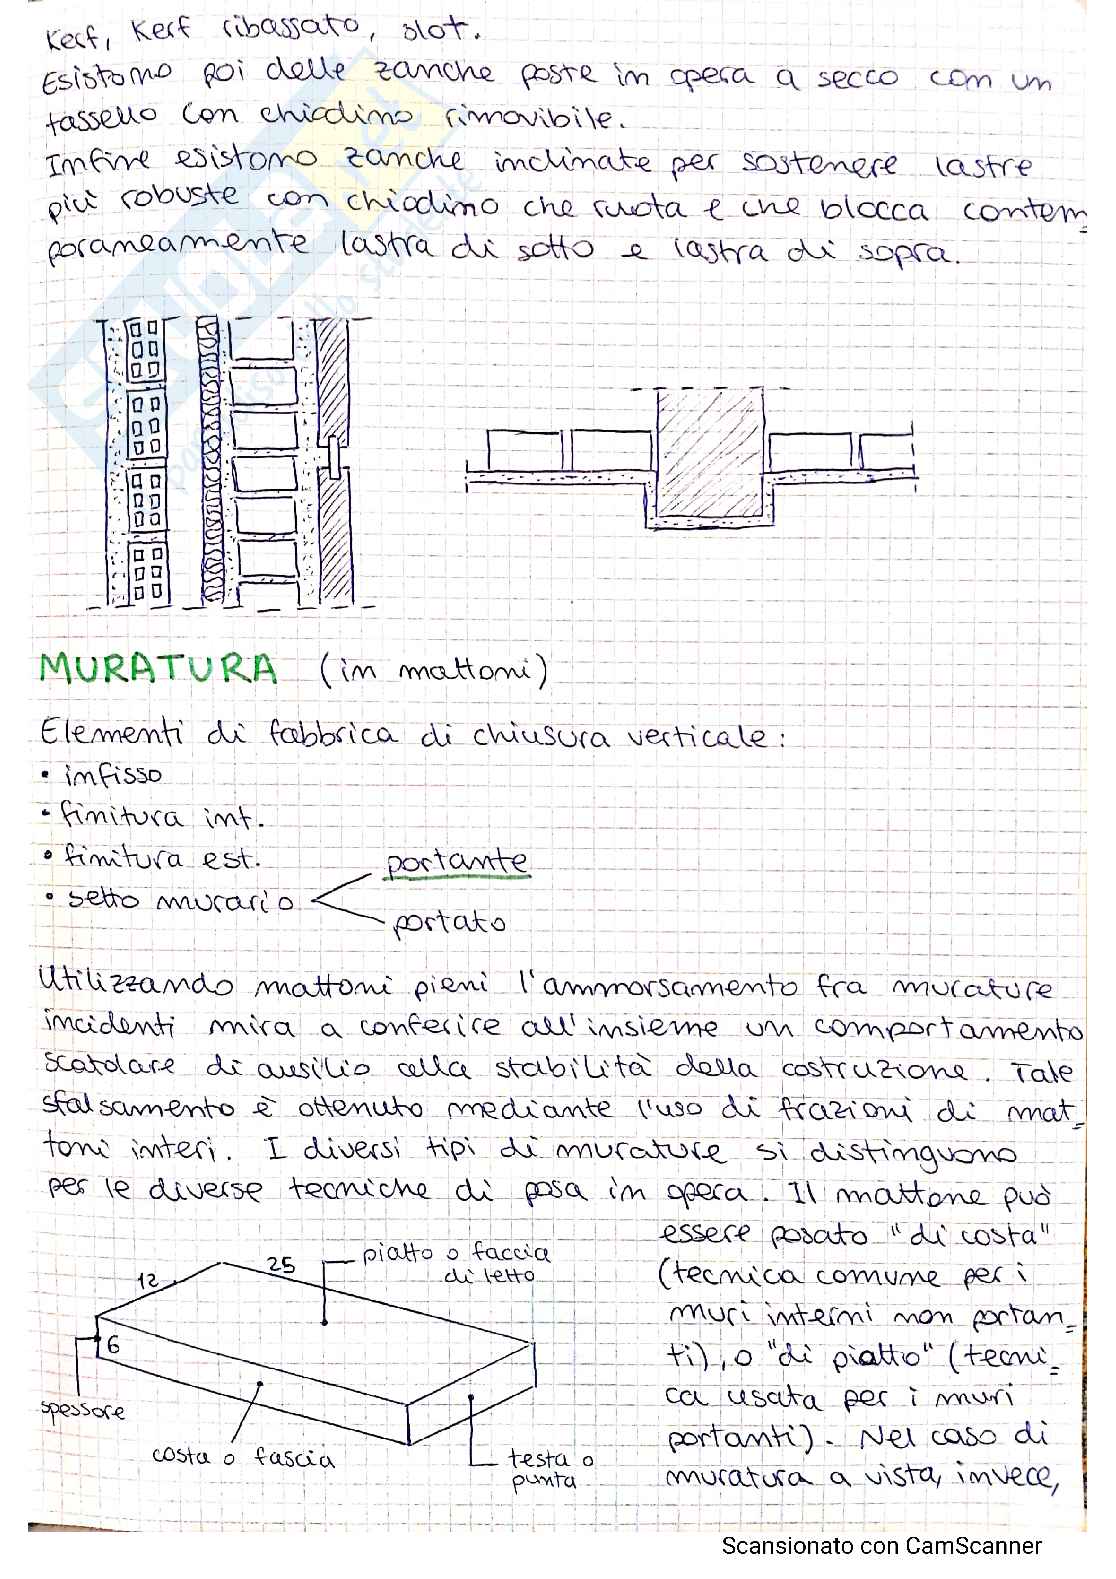 Kerf, Kerf ribassato, slot.
Esistono poi delle zanche poste in opera a secco con un
tassello con chiodino rimovibile.
Infine esistono zanche inclinate per sostenere lastre
più robuste con chiodino che ruota e che blocca contem=
poraneamente lastra di sotto e lastra di sopra.
MURATURA (in mattoni)
Elementi di fabbrica di chiusura verticale:
• infisso
• finitura int.
• finitura est.
• setto murario
portante
portato
Utilizzando mattoni pieni l'ammorsamento fra murature
incidenti mira a conferire all'insieme un comportamento
scatolare di ausilio alla stabilità della costruzione. Tale
sfalsamento è ottenuto mediante l'uso di frazioni di mat=
toni interi. I diversi tipi di murature si distinguono
per le diverse tecniche di posa in opera. Il mattone può
essere posato "di costa"
(tecnica comune per i
muri interni non portan=
ti), o "di piatto" (tecni=
ca usata per i muri
portanti). Nel caso di
muratura a vista, invece,
12
25
piatto o faccia
di letto
6
spessore
costa o fascia
testa o
punta
Scansionato con CamScanner